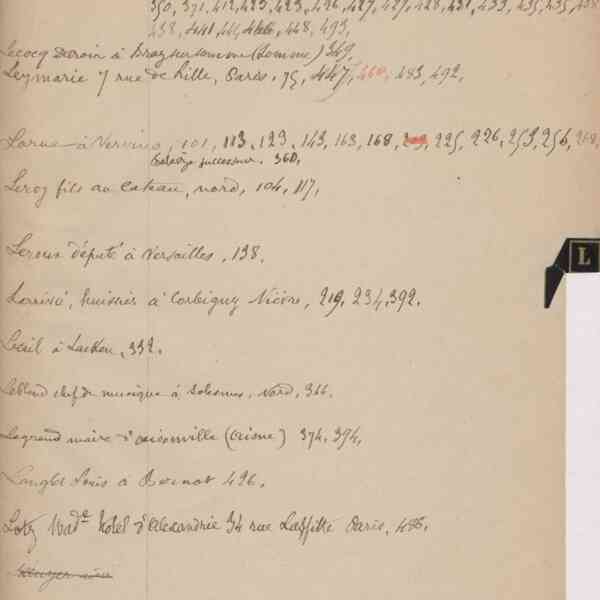 350, 371, 412, 423, 423, 426, 427, 427, 428, 431, 433, 435, 435, 438
438, 441, 444, 448, 493,
Lecocq Deroin à Bray sur somme (Somme) 349,
Leymarie 7 rue de Lille, Paris, 75, 447, 460, 483, 492,
Larue à Vervins, 101, 113, 123, 143, 163, 168, 225, 226, 253, 256, 268,
successeur. 360,
Leroy fils au Cateau, nord, 104, 117,
Leroux député à Versailles, 138,
Lorrivé, huissier à Corbigny Nièvre, 219, 234, 392,
à Laeken, 332,
Leblond chef de musique à Solesmes, Nord, 366,
Legrand maire d' (Aisne) 374, 394,
Langlet Louis à Bernot 426,
Loty Made hotel d'Alexandrie 34 rue Laffitte Paris, 485,
L